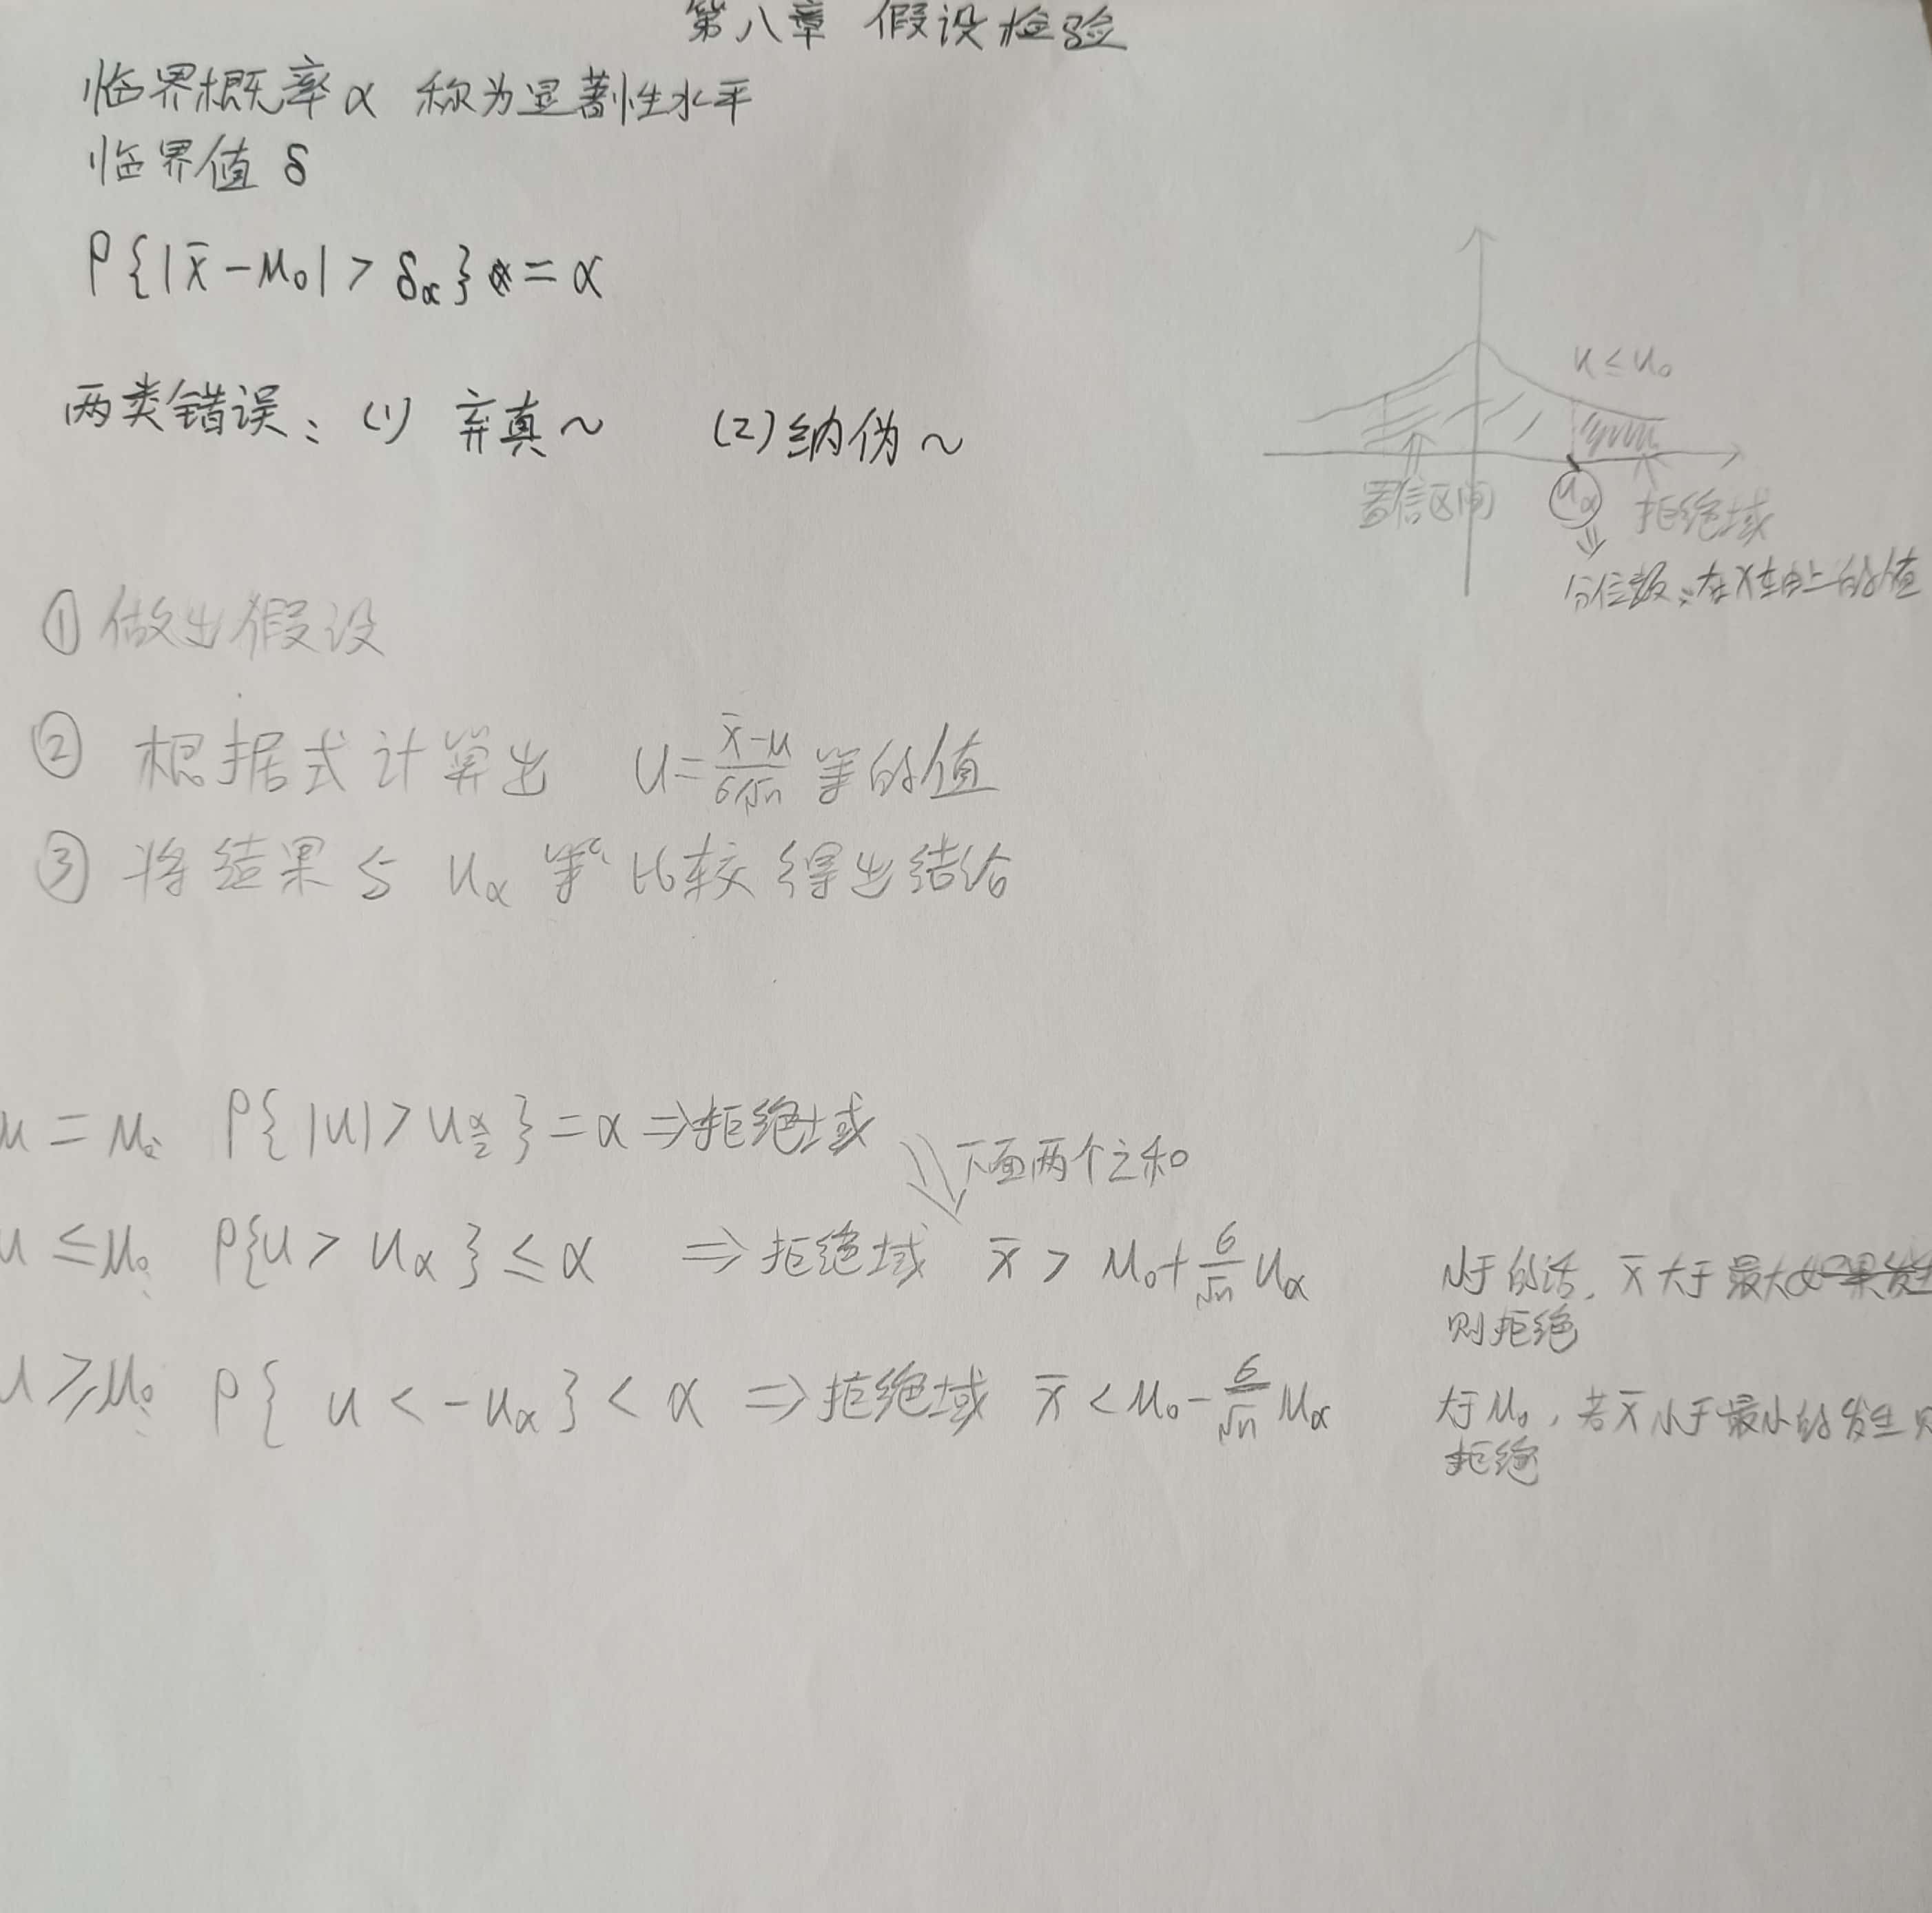 第八章 假设检验
临界概率α 称为显著性水平
临界值 δ
P{|x̄-μ₀|>δα}=α
两类错误: (1) 弃真~ (2)纳伪~
u≤u₀
置信区间 uα 拒绝域
分位数:在x轴上的值
① 做出假设
② 根据式计算出 U=(x̄-μ)/(σ/√n) 等的值
③ 将结果与 uα 等比较得出结论
μ=μ₀ P{|u|>u_{α/2}}=α⇒拒绝域
下面两个之和
μ≤μ₀ P{u>uα}≤α ⇒拒绝域 x̄>μ₀+σ/√n uα
小于的话, x̄大于最大
则拒绝
μ≥μ₀ P{u<-uα}<α ⇒拒绝域 x̄<μ₀-σ/√n uα
大于μ₀, 若x̄小于最小的发生则
拒绝